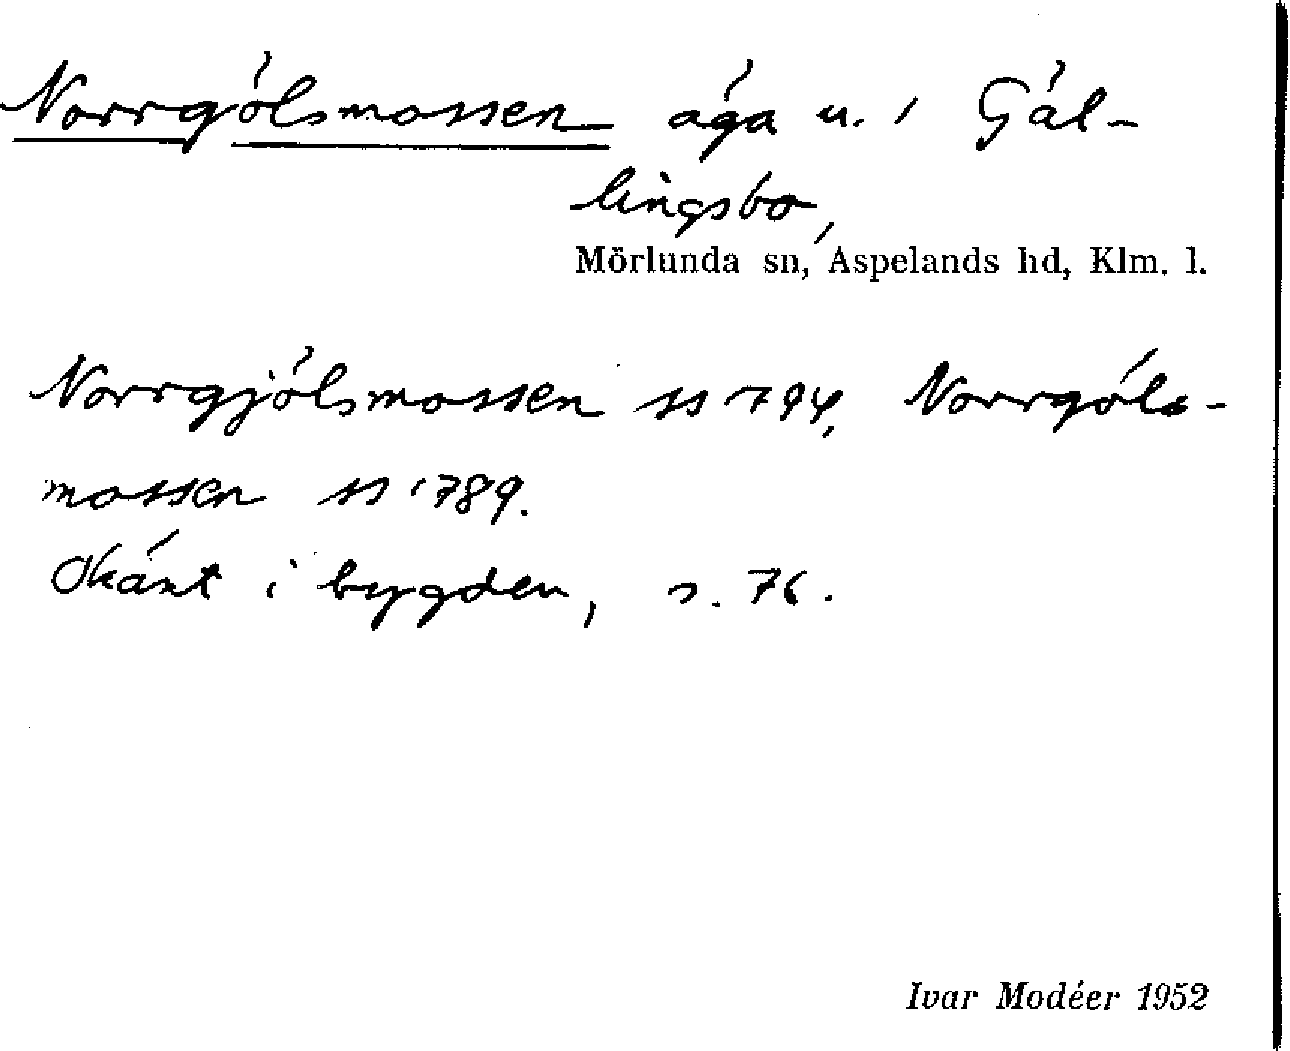 Norrgölsmossen äga u. 1 Gäl-
lingsbo,
Mörlunda sn, Aspelands hd, Klm. l.
Norrgjölsmossen ss 1794, Norrgöls-
mossen ss 1789.
Okänt i bygden, s. 76.
Ivar Modéer 1952